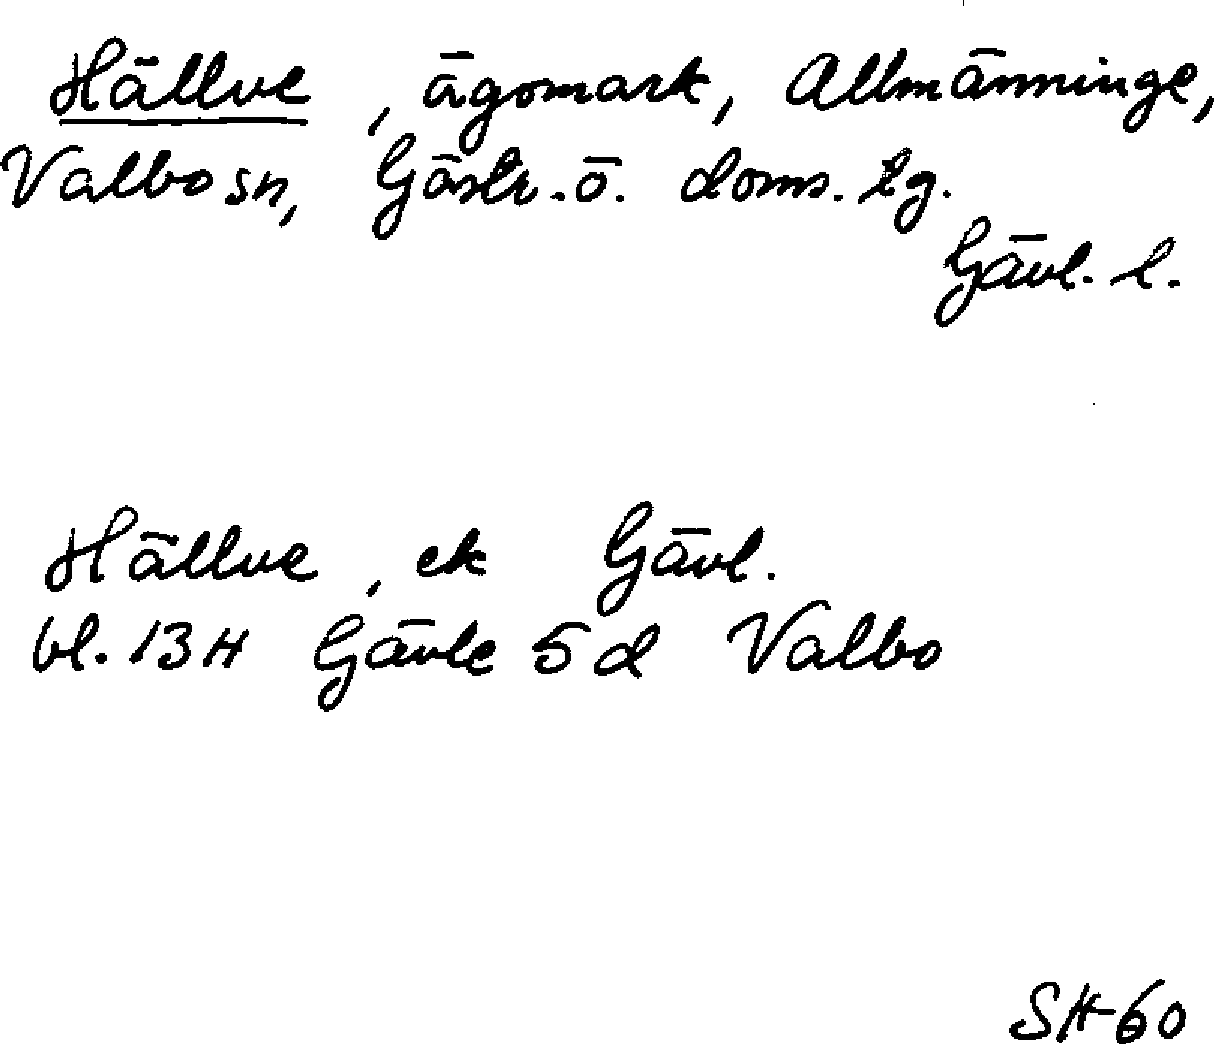 Hällve, ägomark, Allmänninge,
Valbo sn, Gästr. ö. doms. tg.
Gävl. l.
Hällve, ek Gävl.
bl. 13 H Gävle 5 d Valbo
SH-60